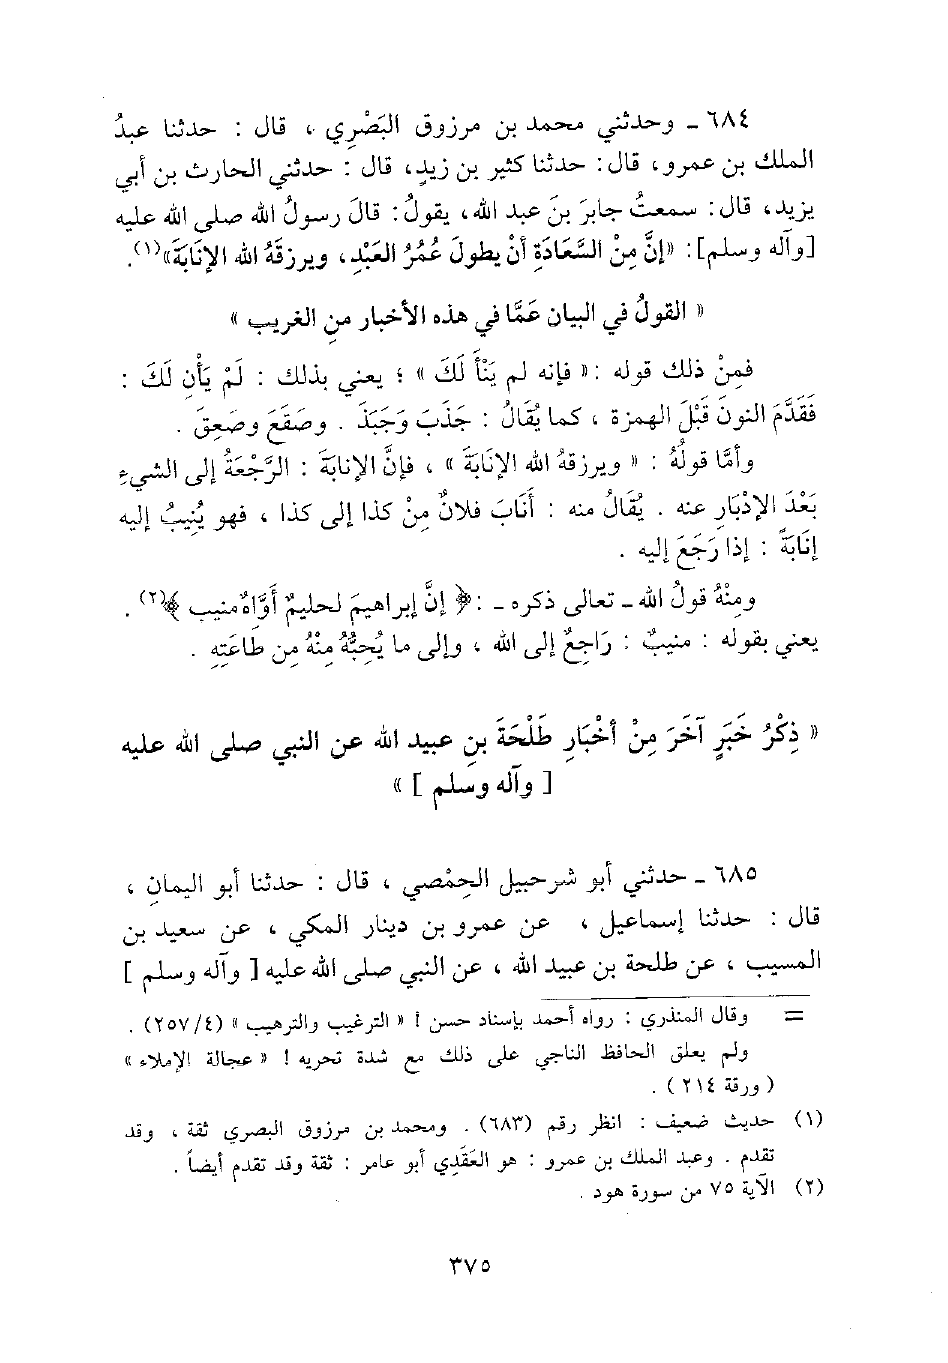 ٦٨٤ ـ وحدثني محمد بن مرزوق البَصْرِي ، قال : حدثنا عبدُ
الملك بن عمرو، قال: حدثنا كثير بن زيدٍ، قال : حدثني الحارث بن أبي
يزيد، قال: سمعتُ جابرَ بنَ عبد الله، يقولُ: قالَ رسولُ الله صلى الله عليه
[وآله وسلم]: «إنَّ مِنْ السَّعَادَةِ أنْ يطولَ عُمُرُ العَبْدِ، ويرزقهُ الله الإنَابَةَ»(١).
« القولُ في البيان عَمَّا في هذه الأخبار مِن الغريب »
فمِنْ ذلك قوله :« فإنه لم يَنْأَ لَكَ » ؛ يعني بذلك : لَمْ يَأْنِ لَكَ :
فَقَدَّمَ النونَ قَبْلَ الهمزة ، كما يُقَالُ : جَذَبَ وَجَبَذَ . وصَقَعَ وصَعِقَ .
وأمَّا قولُهُ : « ويرزقهُ الله الإنَابَةَ » ، فإنَّ الإنابَةَ : الرَّجْعَةُ إلى الشيءِ
بَعْدَ الإدْبَارِ عنه . يُقَالُ منه : أَنَابَ فلانٌ مِنْ كذا إلى كذا ، فهو يُنِيبُ إليه
إنَابَةً : إذا رَجَعَ إليه .
ومِنْهُ قولُ الله ـ تعالى ذكره ـ :﴿ إنَّ إبراهيمَ لحليمٌ أوَّاهٌ منيب ﴾(٢) .
يعني بقوله : منيبٌ : رَاجِعٌ إلى الله ، وإلى ما يُحِبُّهُ مِنْهُ مِن طاعَتِهِ .
« ذِكْرُ خَبَرٍ آخَرَ مِنْ أخْبَارِ طَلْحَةَ بنِ عبيد الله عن النبي صلى الله عليه
[ وآله وسلم ] »
٦٨٥ ـ حدثني أبو شرحبيل الحِمْصي ، قال : حدثنا أبو اليمانِ ،
قال : حدثنا إسماعيل ، عن عمرو بن دينار المكي ، عن سعيد بن
المسيب ، عن طلحة بن عبيد الله ، عن النبي صلى الله عليه [ وآله وسلم ]
= وقال المنذري : رواه أحمد بإسناد حسن ! « الترغيب والترهيب » (٢٥٧/٤) .
ولم يعلق الحافظ الناجي على ذلك مع شدة تحريه ! « عجالة الإملاء »
( ورقة ٢١٤ ) .
(١) حديث ضعيف : انظر رقم (٦٨٣) . ومحمد بن مرزوق البصري ثقة ، وقد
تقدم . وعبد الملك بن عمرو : هو العَقَدِي أبو عامر : ثقة وقد تقدم أيضاً .
(٢) الآية ٧٥ من سورة هود .
٣٧٥